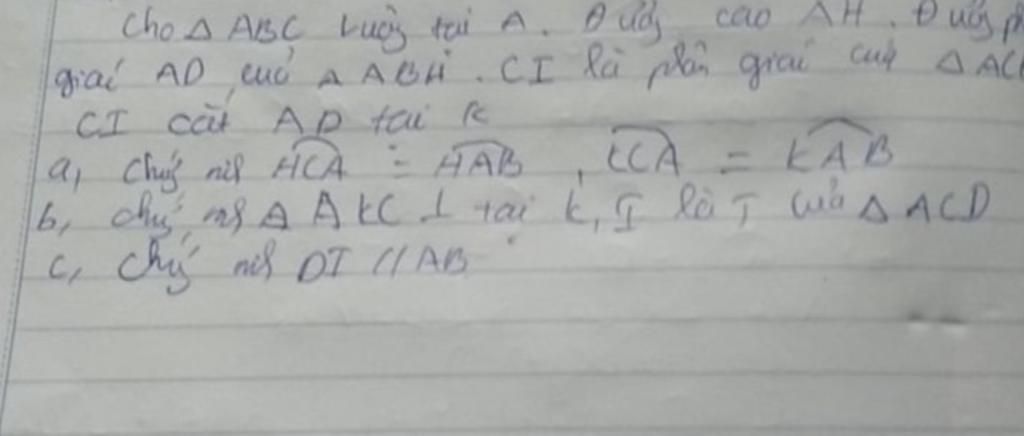 Cho Δ ABC vuông tại A. Đường cao AH. Đường p
giác AD của Δ ABH. CI là phân giác của Δ AC
CI cắt AD tại K
a, chứng mh HCA = HAB, KCA = KAB
b, chứng mh Δ AKC ⊥ tại K, I là T của Δ ACD
c, chứng mh DI // AB